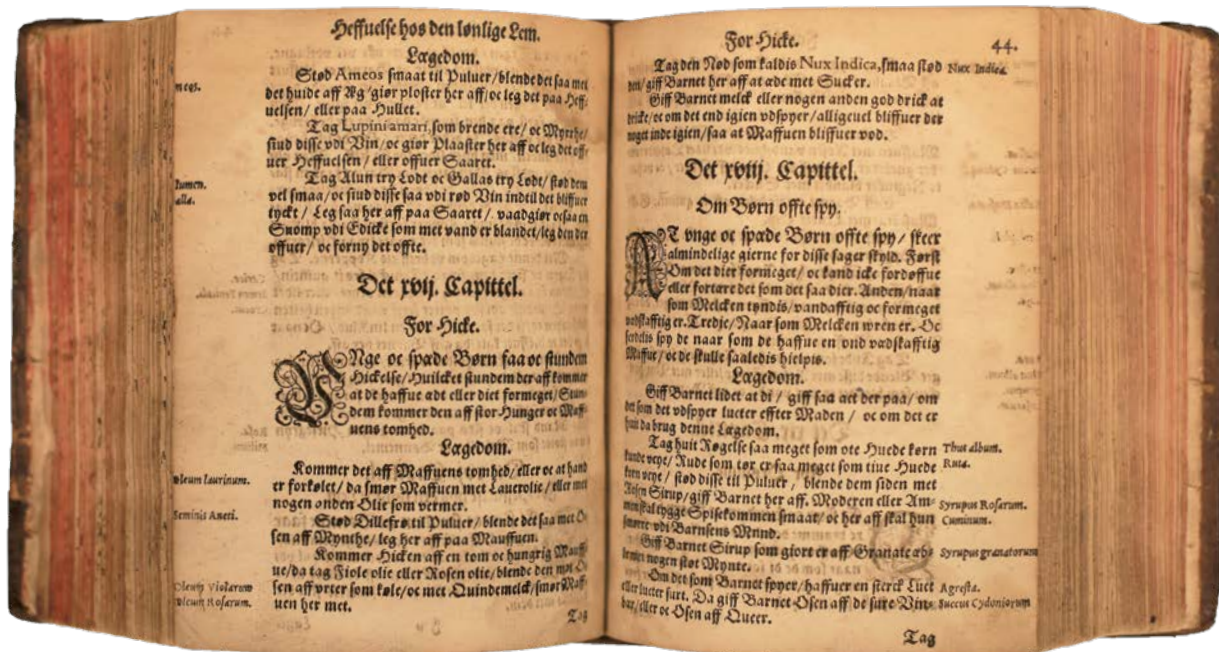 Heffuelse hos den lønlige Lem.
Lægedom.
meos.
Stød Ameos smaat til Puluer/ blende det saa met
det huide aff Æg/ giør ploster her aff/ oc leg det paa Heff-
uelsen/ eller paa Hullet.
Tag Lupini amari, som brende ere/ oc Myrrhe/
siud disse vdi Vin/ oc giør Plaaster her aff oc leg det off-
uer Heffuelsen/ eller offuer Saaret.
Tag Alun try Lodt oc Gallas try Lodt/ stød dem
lumen.
alla.
vel smaa/ oc siud disse saa vdi rød Vin indtil det bliffuer
tyckt/ Leg saa her aff paa Saaret/ vaadgiør ocsaa en
Suomp vdi Edicke som met vand er blandet/ leg den der
offuer/ oc forny det offte.
Det xvij. Capittel.
For Hicke.
VNge oc spæde Børn faa oc stundem
Hickelse/ Huilcket stundem der aff kommer
at de haffue ædt eller diet formeget/ Stun-
dem kommer den aff stor Hunger oc Maff-
uens tomhed.
Lægedom.
Kommer det aff Maffuens tomhed/ eller oc at hand
oleum laurinum.
er forkølet/ da smør Maffuen met Lauerolie/ eller met
nogen anden Olie som vermer.
Seminis Aneti.
Stød Dillefrø til Puluer/ blende det saa met O-
sen aff Mynthe/ leg her aff paa Mauffuen.
Kommer Hicken aff en tom oc hungrig Mauff-
ue/ da tag Fiole olie eller Rosen olie/ blende den met O-
Oleum Violarum
sen aff vrter som køle/ oc met Quindemelck/ smør Maff-
oleum Rosarum.
uen her met.
Tag
For Hicke.
44.
Tag den Nød som kaldis Nux Indica, smaa stød
Nux Indica.
den/ giff Barnet her aff at æde met Sucker.
Giff Barnet melck eller nogen anden god drick at
dricke/ oc om det end igien vdspyer/ alligeuel bliffuer der
noget inde igien/ saa at Maffuen bliffuer vod.
Det xviij. Capittel.
Om Børn offte spy.
AT vnge oc spæde Børn offte spy/ skeer
almindelige gierne for disse sager skyld. Først
Om det dier formeget/ oc kand icke fordøffue
eller fortære det som det saa dier. Anden/ naar
som Melcken tyndis/ vandafftig oc formeget
vedskafftig er. Tredje/ Naar som Melcken vren er. Oc
serdelis spy de naar som de haffue en vnd vædskafftig
Maffue/ oc de skulle saaledis hielpis.
Lægedom.
Giff Barnet lidet at di/ giff saa act der paa/ om
det som det vdspyer lucter effter Maden/ oc om det er
huit da brug denne Lægedom.
Tag huit Røgelse saa meget som otte Huede korn
Thus album.
kunde veye/ Rude som tør er saa meget som tiue Huede
Ruta.
korn veye/ stød disse til Puluer, blende dem siden met
Rosen Sirup/ giff Barnet her aff. Moderen eller Am-
Syrupus Rosarum.
men skal tygge Spisekommen smaat/ oc her aff skal hun
Cuminum.
smøre vdi Barnsens Mund.
Giff Barnet Sirup som giort er aff Granateæb-
Syrupus granatorum
le met nogen støt Mynte.
Om det som Barnet spyer/ haffuer en sterck Luct
Agresta.
eller lucter surt. Da giff Barnet Osen aff de sure Vin-
Succus Cydoniorum
bær/ eller oc Osen aff Queer.
Tag